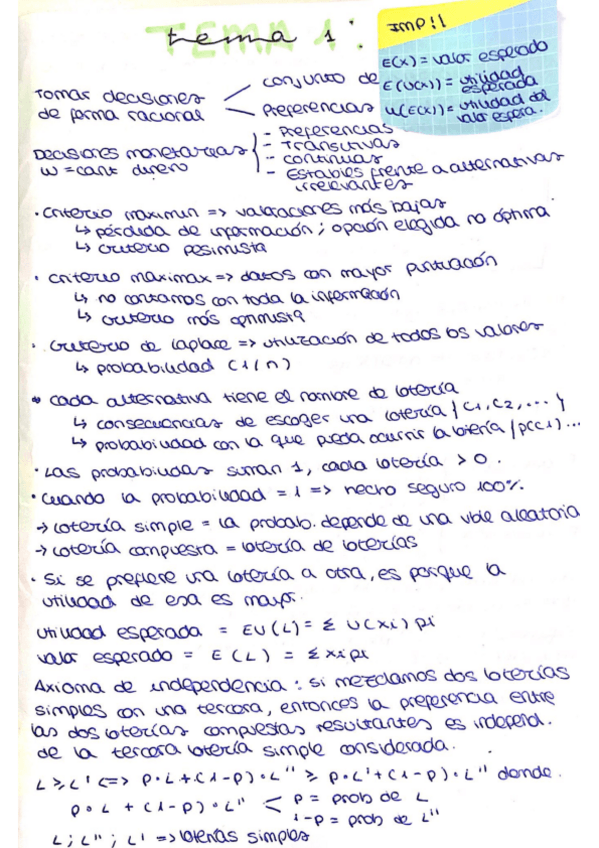 tema 1:
TEMA 1:
IMP!!
E(x) = valor esperado
E(U(x)) = utilidad esperada
U(E(x)) = utilidad del valor espera.
Tomar decisiones de forma racional
conjunto de
Preferencias
Decisiones monetarias
W = cant dinero
- Preferencias
- Transitivas
- continuas
- Estables frente a alternativas irrelevantes
· Criterio maximin => valoraciones más bajas
↳ pérdida de información; opción elegida no óptima
↳ criterio pesimista
· Criterio maximax => datos con mayor puntuación
↳ no contamos con toda la información
↳ criterio más optimista
· Criterio de Laplace => utilización de todos los valores
↳ probabilidad (1/n)
• Cada alternativa tiene el nombre de lotería
↳ consecuencias de escoger una lotería / C1, C2, ... y
↳ probabilidad con la que pueda ocurrir la lotería / p(C1)...
· Las probabilidas suman 1, cada lotería > 0.
· Cuando la probabilidad = 1 => hecho seguro 100%
→ Lotería simple = la probab. depende de una vble aleatoria
→ Lotería compuesta = lotería de loterías
· Si se prefiere una lotería a otra, es porque la
utilidad de esa es mayor.
Utilidad esperada = EU(L) = Σ U(xi) pi
valor esperado = E(L) = Σ xi pi
Axioma de independencia: si mezclamos dos loterías
simples con una tercera, entonces la preferencia entre
las dos loterías compuestas resultantes es independ.
de la tercera lotería simple considerada.
L ≥ L' <=> p·L+(1-p)·L'' ≥ p·L'+(1-p)·L'' donde.
p·L + (1-p)·L''
p = prob de L
1-p = prob de L''
L; L''; L' => loterías simples